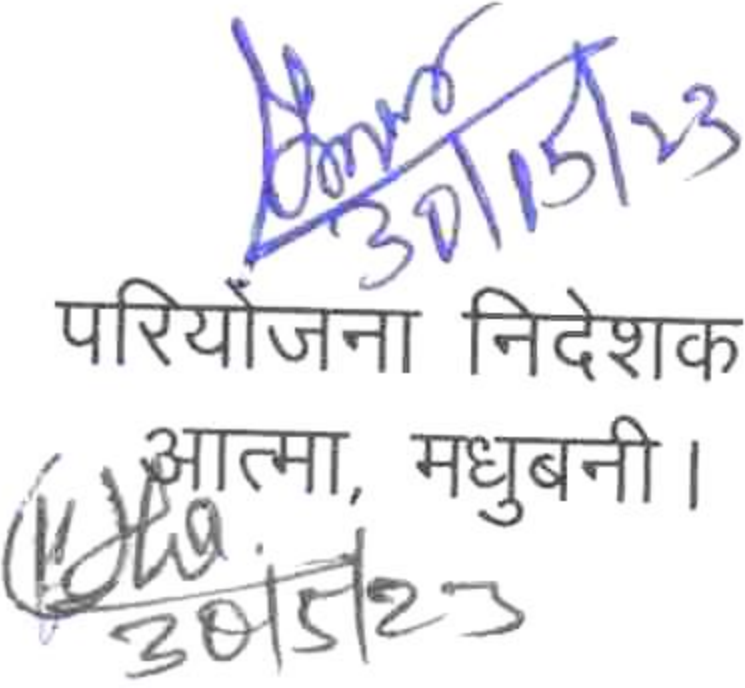 30/5/23
परियोजना निदेशक
आत्मा, मधुबनी।
30/5/23